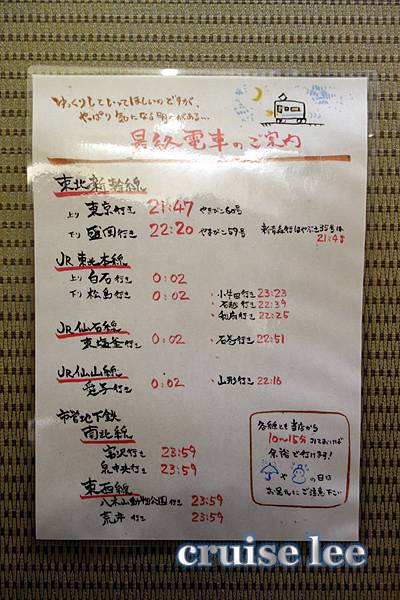 ゆっくりしていってほしいのですが、
やっぱり気になる明日がある…
最終電車のご案内
東北新幹線
上り 東京行き 21:47 やまびこ60号
下り 盛岡行き 22:20 やまびこ59号 新青森行はやぶさ35号は 21:48
JR東北本線
上り 白石行き 0:02
下り 松島行き 0:02 ・小牛田行き 23:23
・石越行き 22:39
・利府行き 22:25
JR仙石線
東塩釜行き 0:02 ・石巻行き 22:51
JR仙山線
愛子行き 0:02 ・山形行き 22:16
市営地下鉄
南北線
富沢行き 23:59
泉中央行き 23:59
東西線
八木山動物公園行き 23:59
荒井行き 23:59
各線とも当店から
10~15分みておけば
余裕で行けます!
や の日は
お足元にご注意下さい
cruise lee